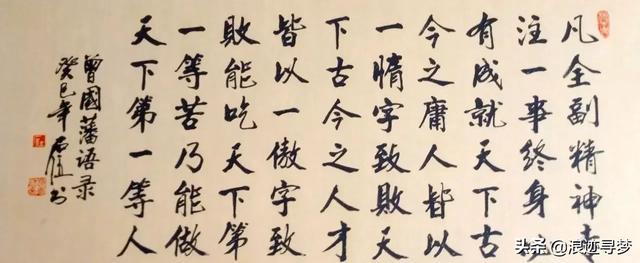 凡全副精神专
注一事终身必
有成就天下古
今之庸人皆以
一惰字致敗天
下古今之人才
皆以一傲字致
敗能吃天下第
一等苦乃能做
天下第一等人
曾國藩语录
癸巳年 书
头条@浪迹寻梦